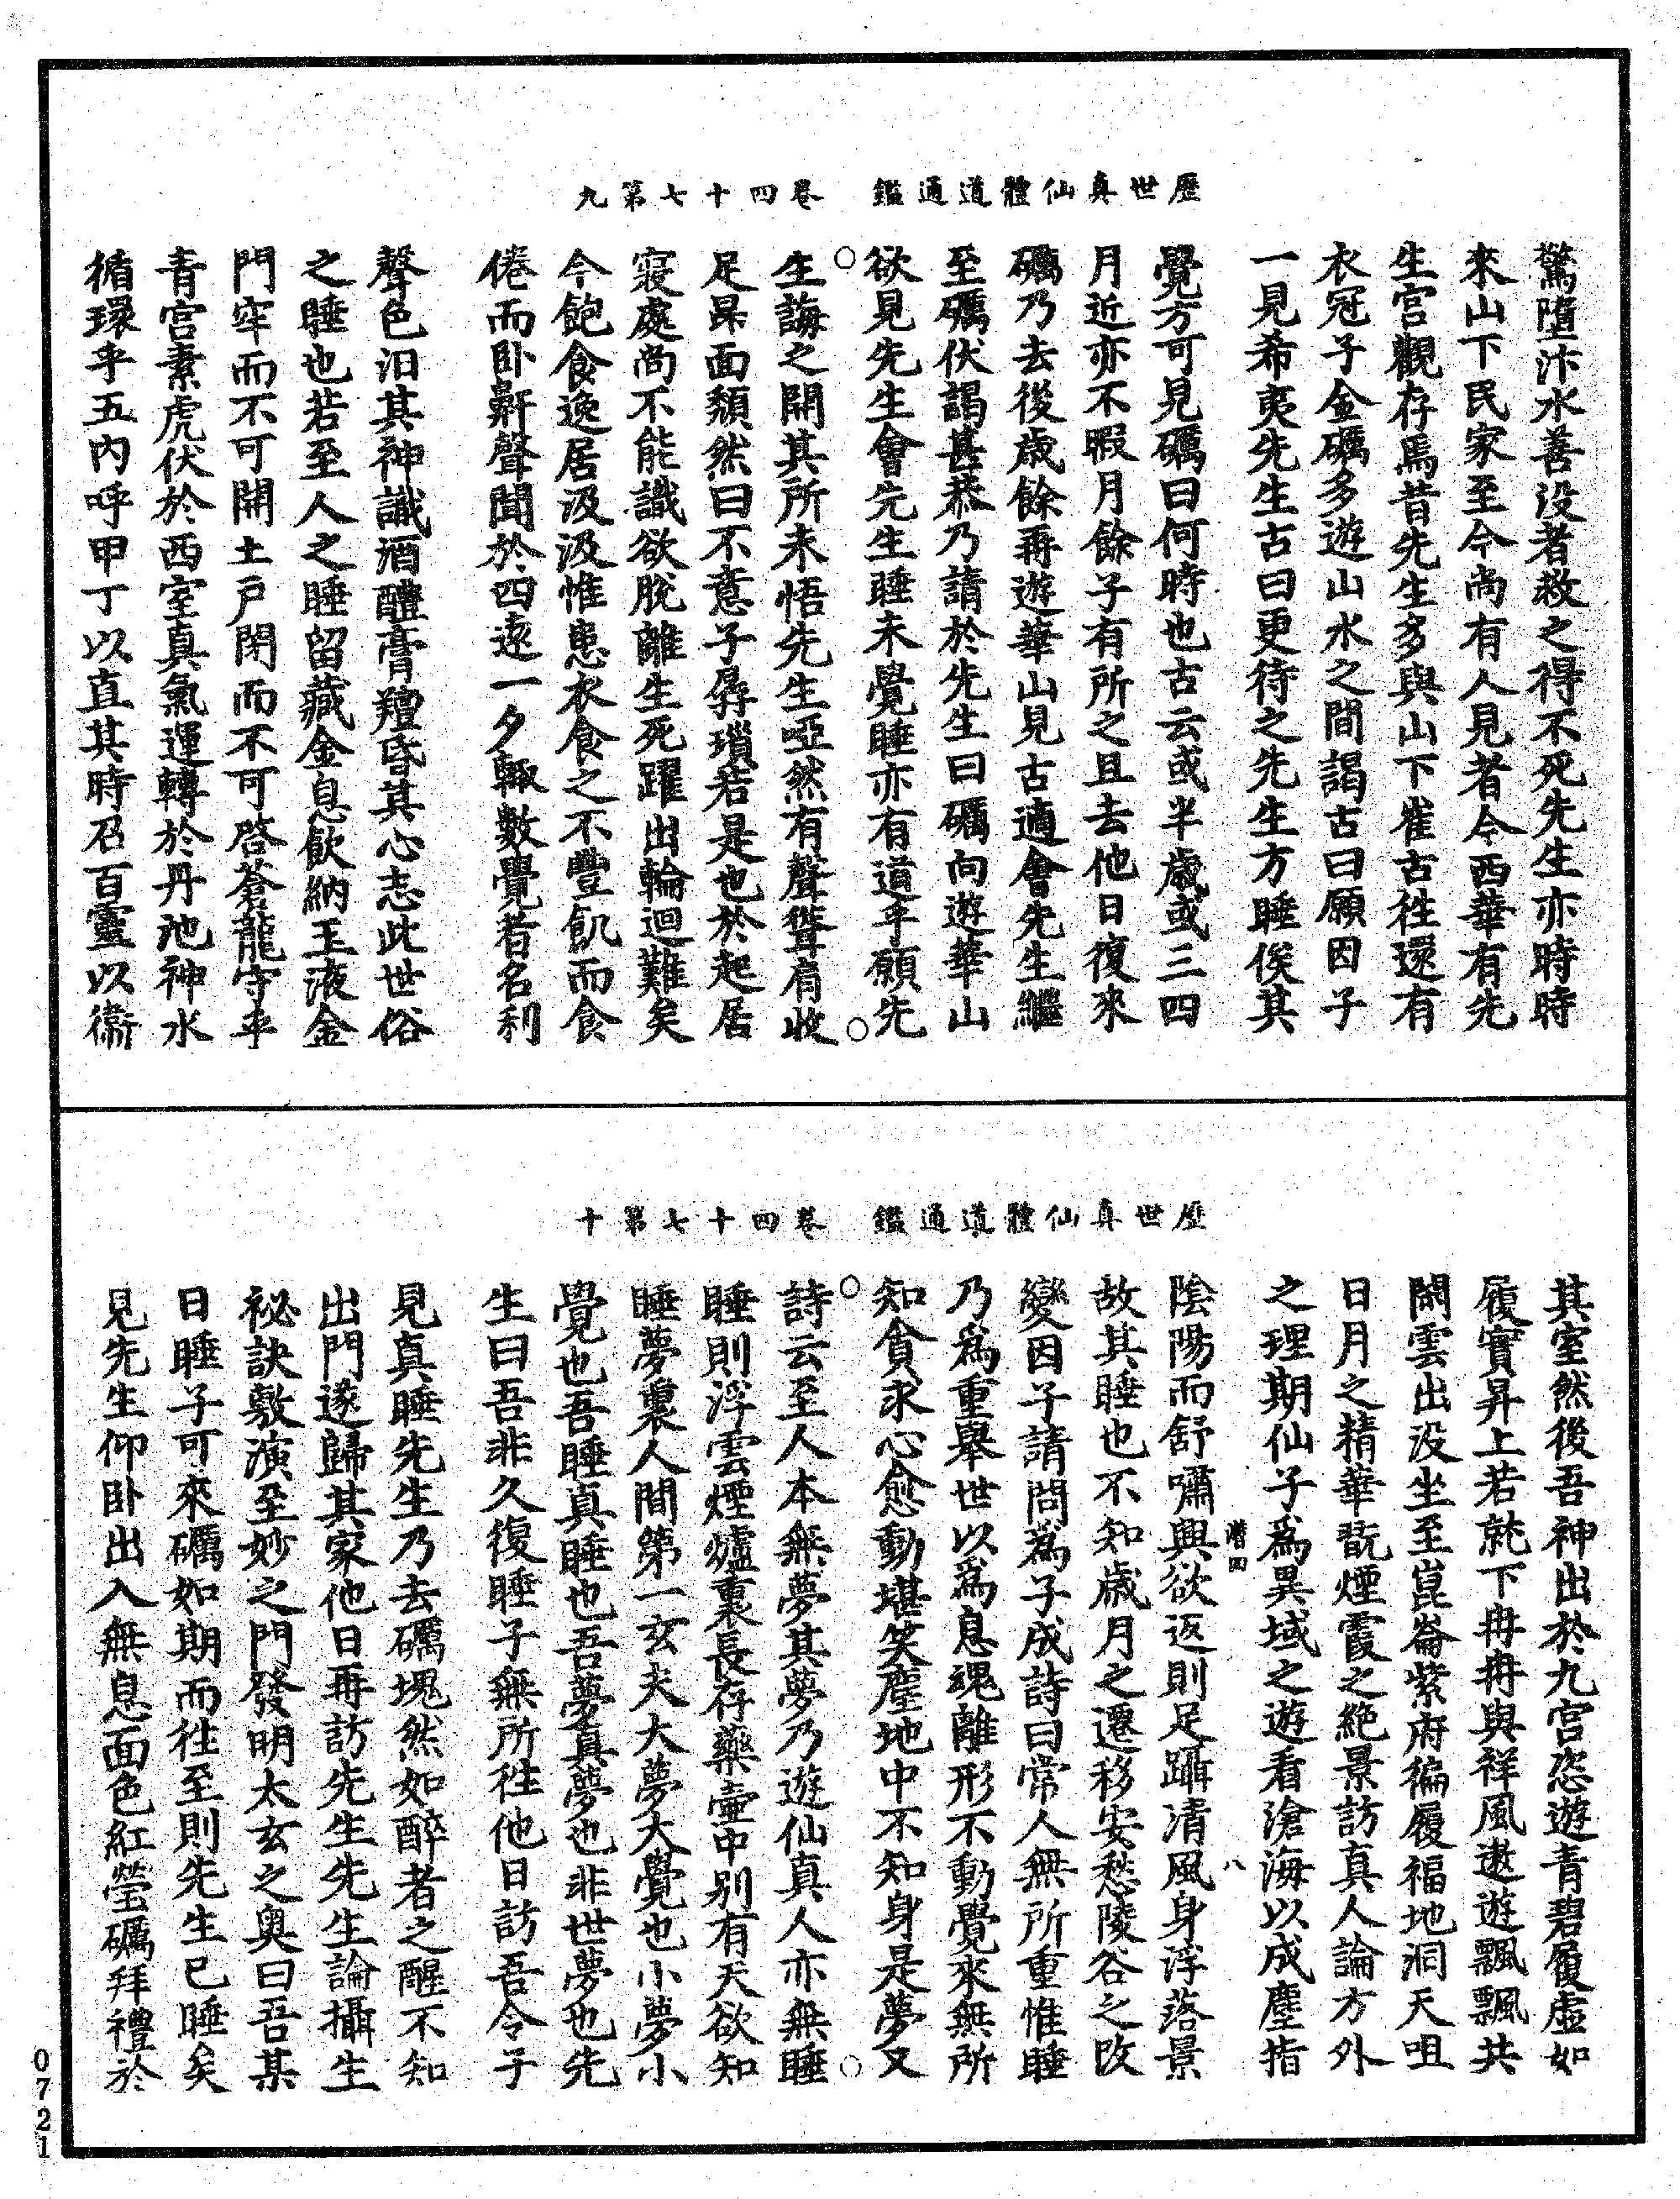 歷世真仙體道通鑑　卷四十七第九
驚墮汴水善没者救之得不死先生亦時時
來山下民家至今尚有人見者今西華有先
生宫觀存焉昔先生多與山下崔古徃還有
衣冠子金礪多遊山水之間謁古曰願因子
一見希夷先生古曰更待之先生方睡俟其
覺方可見礪曰何時也古云或半歲或三四
月近亦不暇月餘子有所之且去他日復來
礪乃去後歲餘再遊華山見古適會先生繼
至礪伏謁甚恭乃請於先生曰礪向遊華山
欲見先生會先生睡未覺睡亦有道乎願先
生誨之開其所未悟先生啞然有聲聳肩收
足杲面頹然曰不意子孱瑣若是也於起居
寢處尚不能識欲脫離生死躍出輪迴難矣
今飽食逸居汲汲惟患衣食之不豐飢而食
倦而卧鼾聲聞於四遠一夕輒數覺者名利
聲色汩其神識酒醴膏羶昏其心志此世俗
之睡也若至人之睡留藏金息飲納玉液金
門牢而不可開土戶閉而不可啓蒼龍守乎
青宫素虎伏於西室真氣運轉於丹池神水
循環乎五內呼甲丁以直其時召百靈以衞
歷世真仙體道通鑑　卷四十七第十
其室然後吾神出於九宫恣遊青碧履虛如
履實昇上若就下冉冉與祥風遨遊飄飄共
閑雲出没坐至崑崙紫府徧履福地洞天咀
日月之精華翫煙霞之絶景訪真人論方外
之理期仙子為異域之遊看滄海以成塵指
潜四　八
陰陽而舒嘯興欲返則足躡清風身浮落景
故其睡也不知歲月之遷移安愁陵谷之改
變因子請問為子成詩曰常人無所重惟睡
乃為重舉世以為息魂離形不動覺來無所
知貪求心愈動堪笑塵地中不知身是夢又
詩云至人本無夢其夢乃遊仙真人亦無睡
睡則浮雲煙爐裏長存藥壷中别有天欲知
睡夢裏人間第一玄夫大夢大覺也小夢小
覺也吾睡真睡也吾夢真夢也非世夢也先
生曰吾非久復睡子無所徃他日訪吾令子
見真睡先生乃去礪塊然如醉者之醒不知
出門遂歸其家他日再訪先生先生論攝生
祕訣敷演至妙之門發明太玄之奥曰吾某
日睡子可來礪如期而徃至則先生已睡矣
見先生仰卧出入無息面色紅瑩礪拜禮於
0721